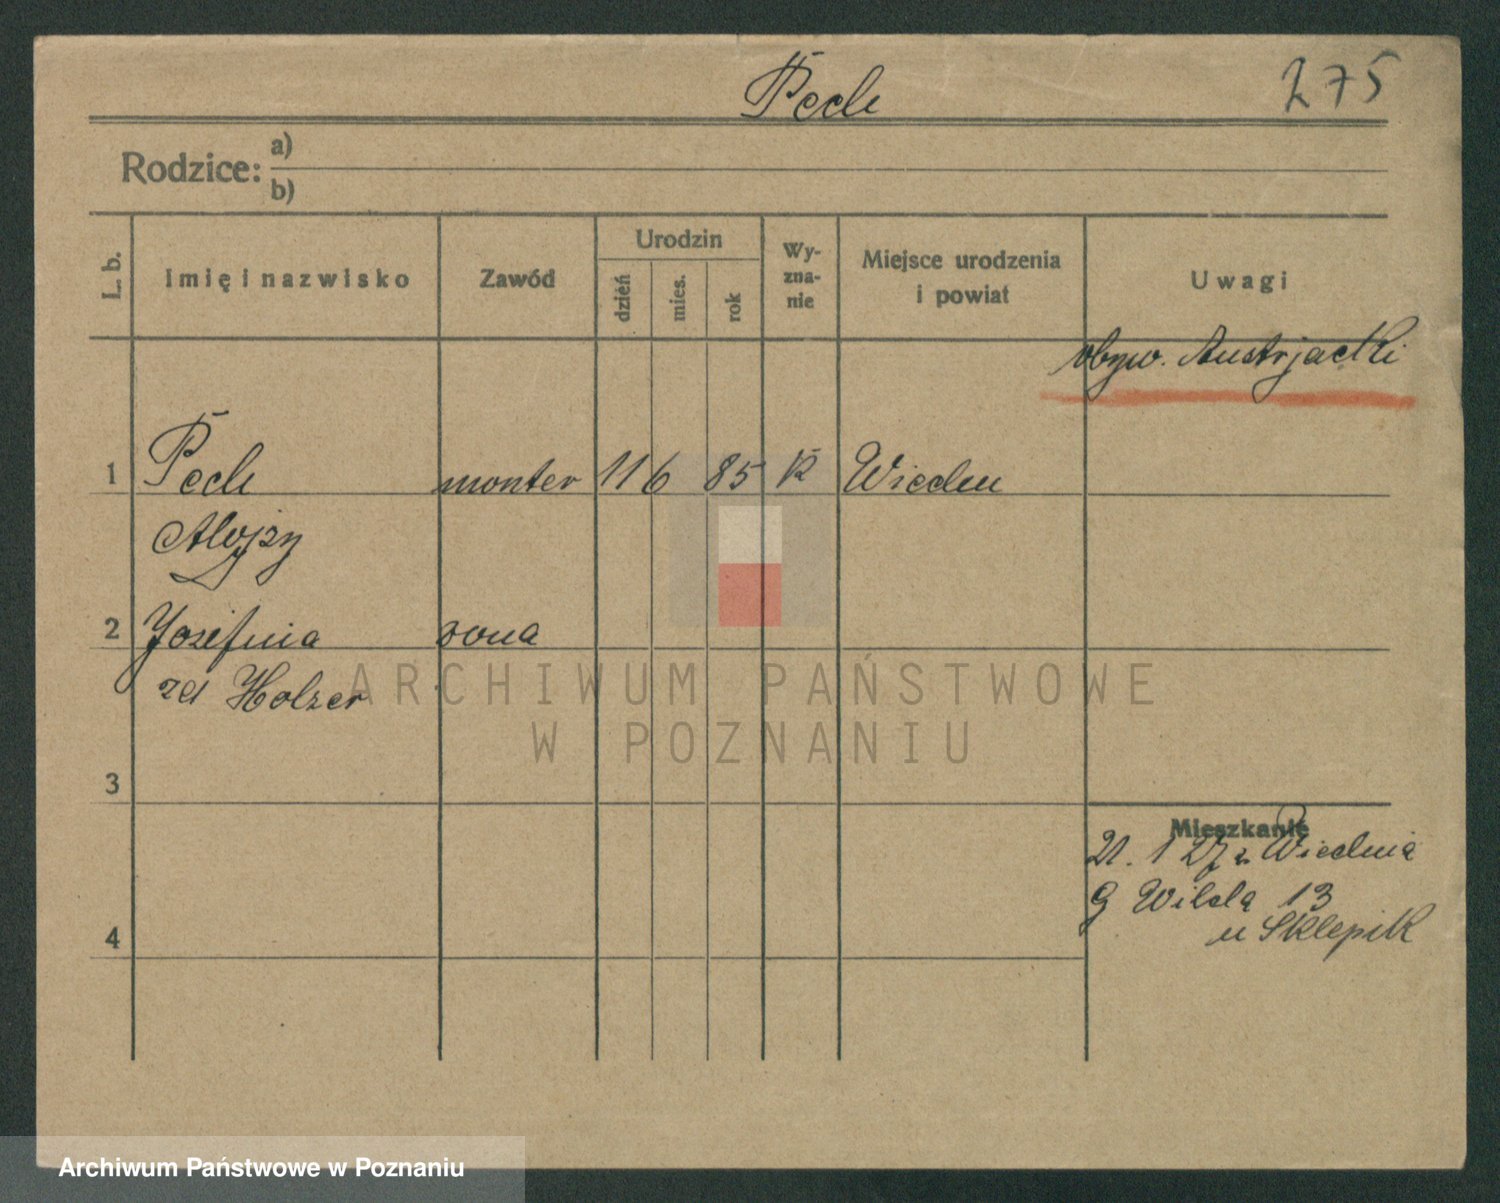 Pech
275
Rodzice: a)
b)
L. b.
Imię i nazwisko
Zawód
Urodzin
dzień
mies.
rok
Wy-
zna-
nie
Miejsce urodzenia
i powiat
Uwagi
obyw. Austrjacki
1 Pech monter 11 6 85 K Wieden
Alojzy
2 Josefina żona
zd Holzer
3
Mieszkanie
21. 1 27 z Wiednia
G Wilda 13
u Sklepik
4
ARCHIWUM PAŃSTWOWE
W POZNANIU
Archiwum Państwowe w Poznaniu